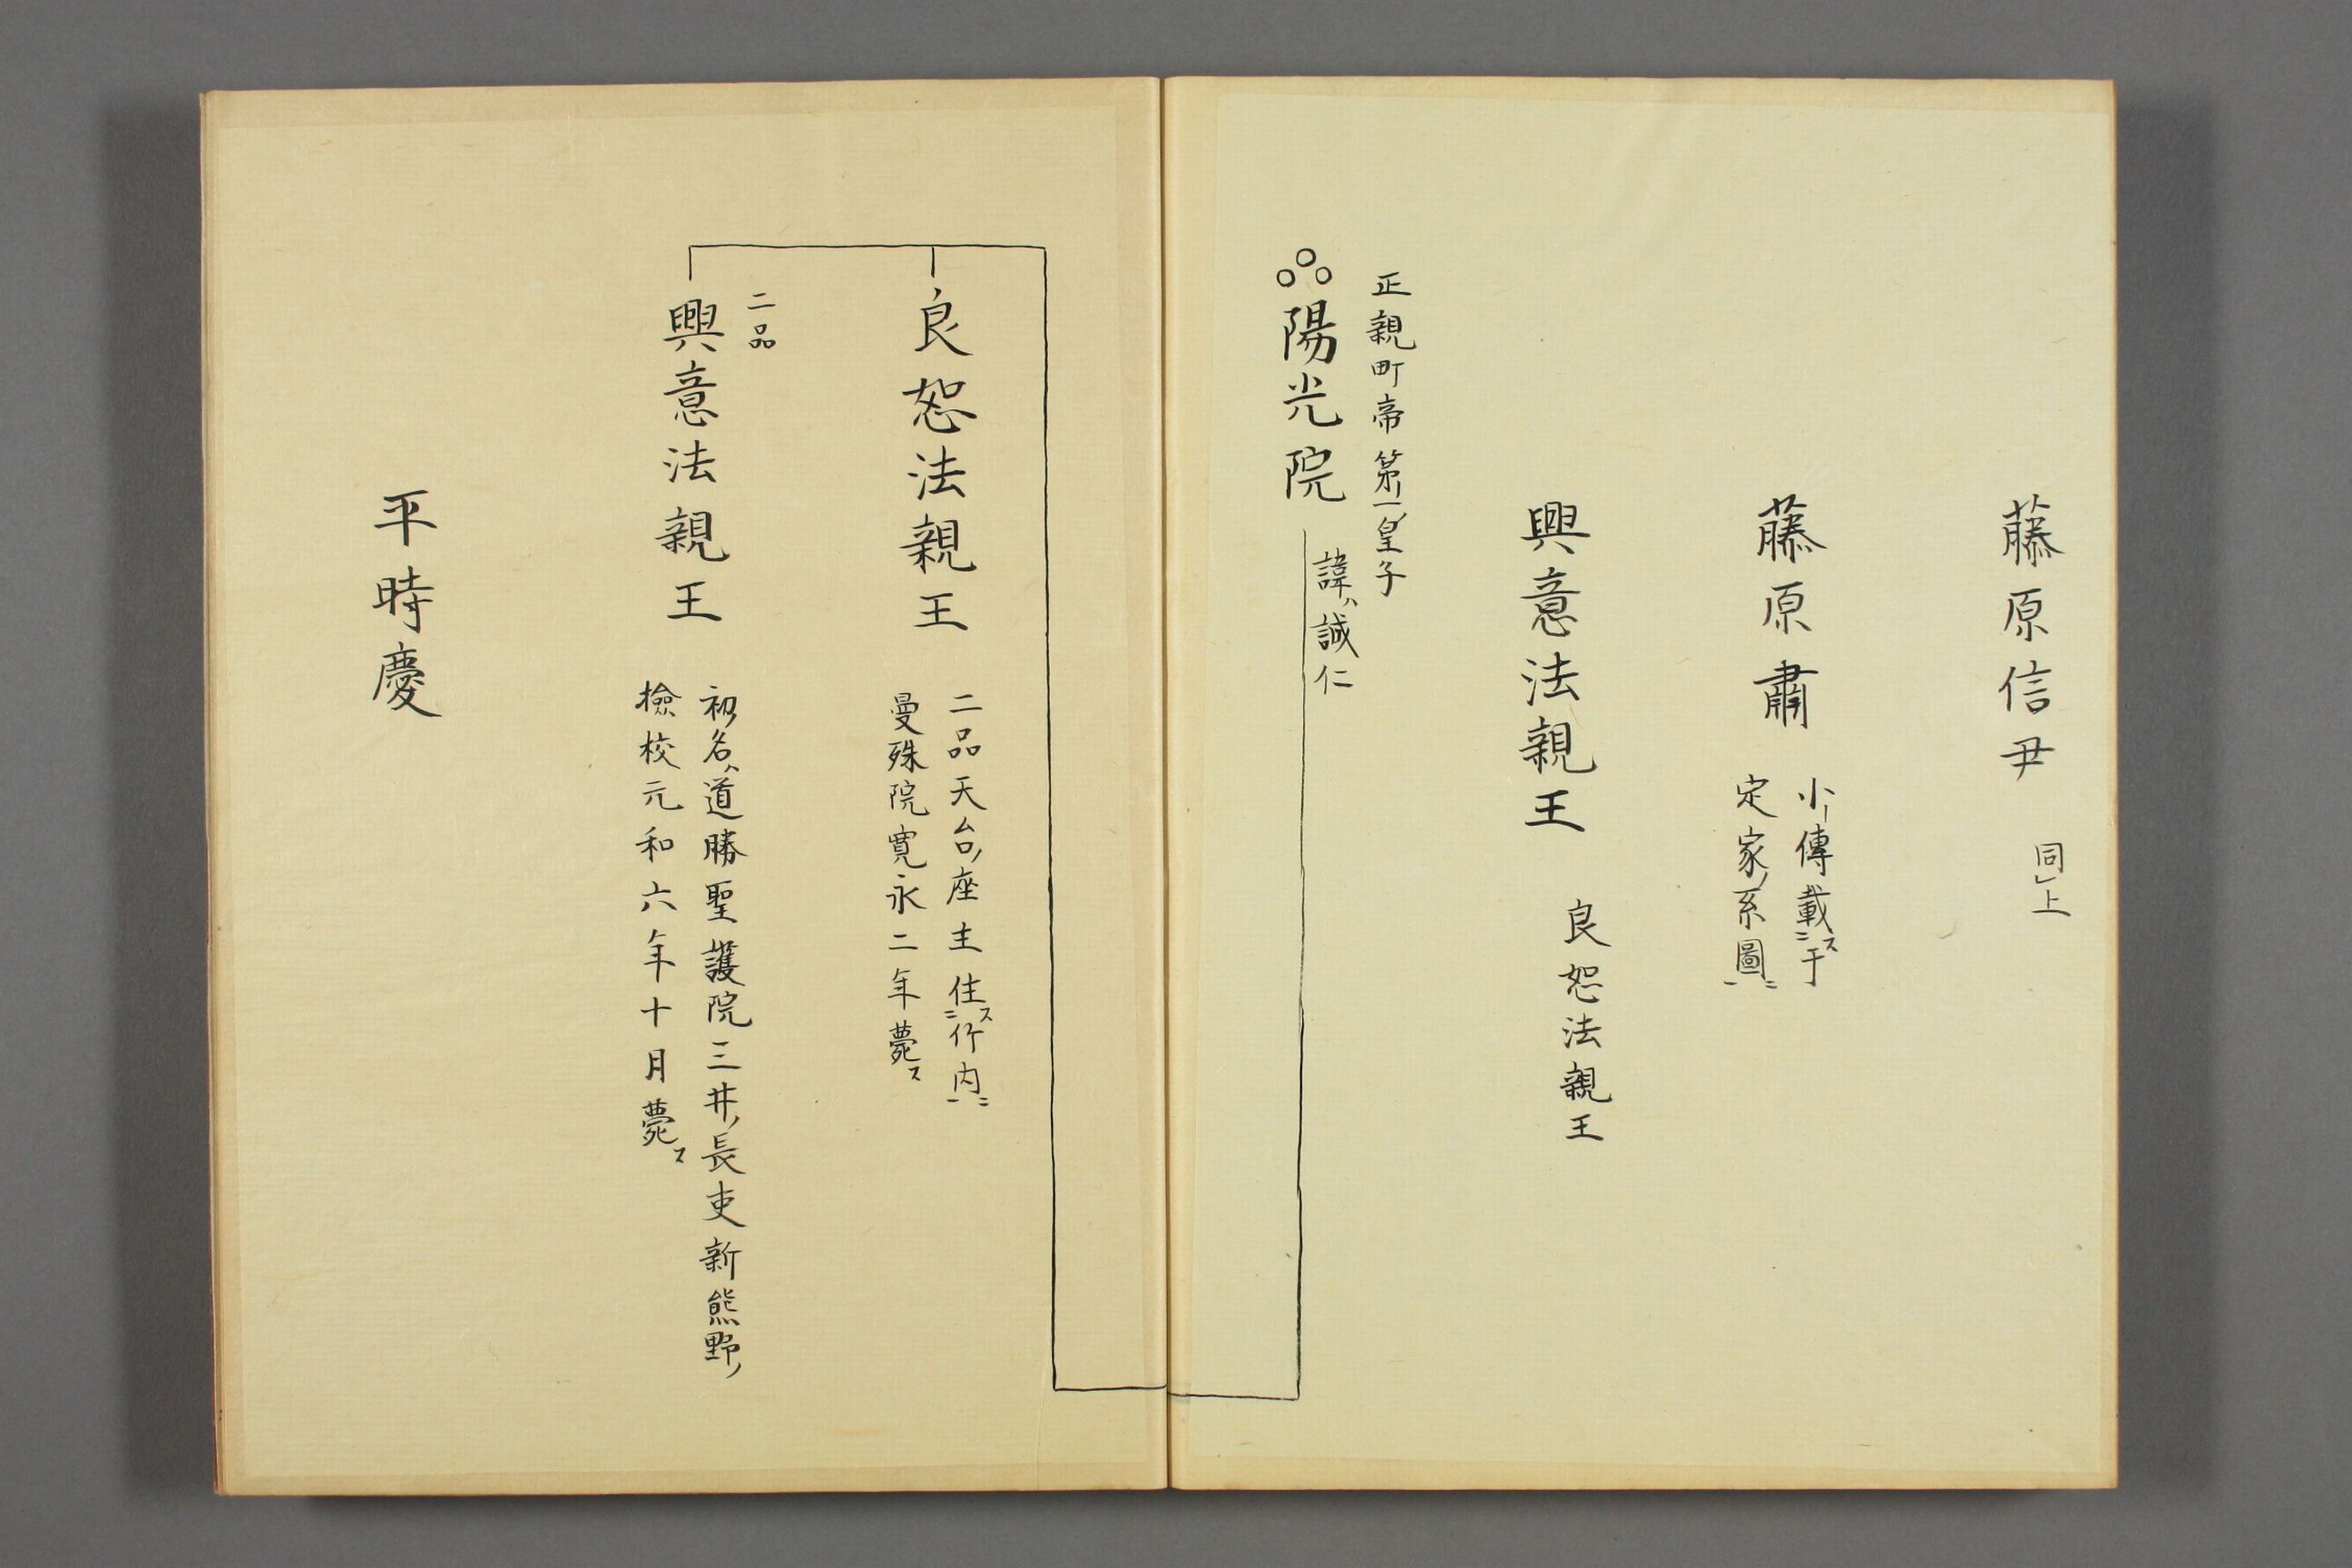 藤原信尹 同上
藤原肅 小傳載ス二于
定家ノ系圖一ニ
興意法親王 良恕法親王
正親町帝第一ノ皇子
陽光院 諱ハ誠仁
良恕法親王 二品天台ノ座主住ス二竹内一ニ
曼殊院寛永二年薨ス
二品
興意法親王 初ノ名ハ道勝聖護院三井ノ長吏新熊野ノ
檢校元和六年十月薨ス
平時慶